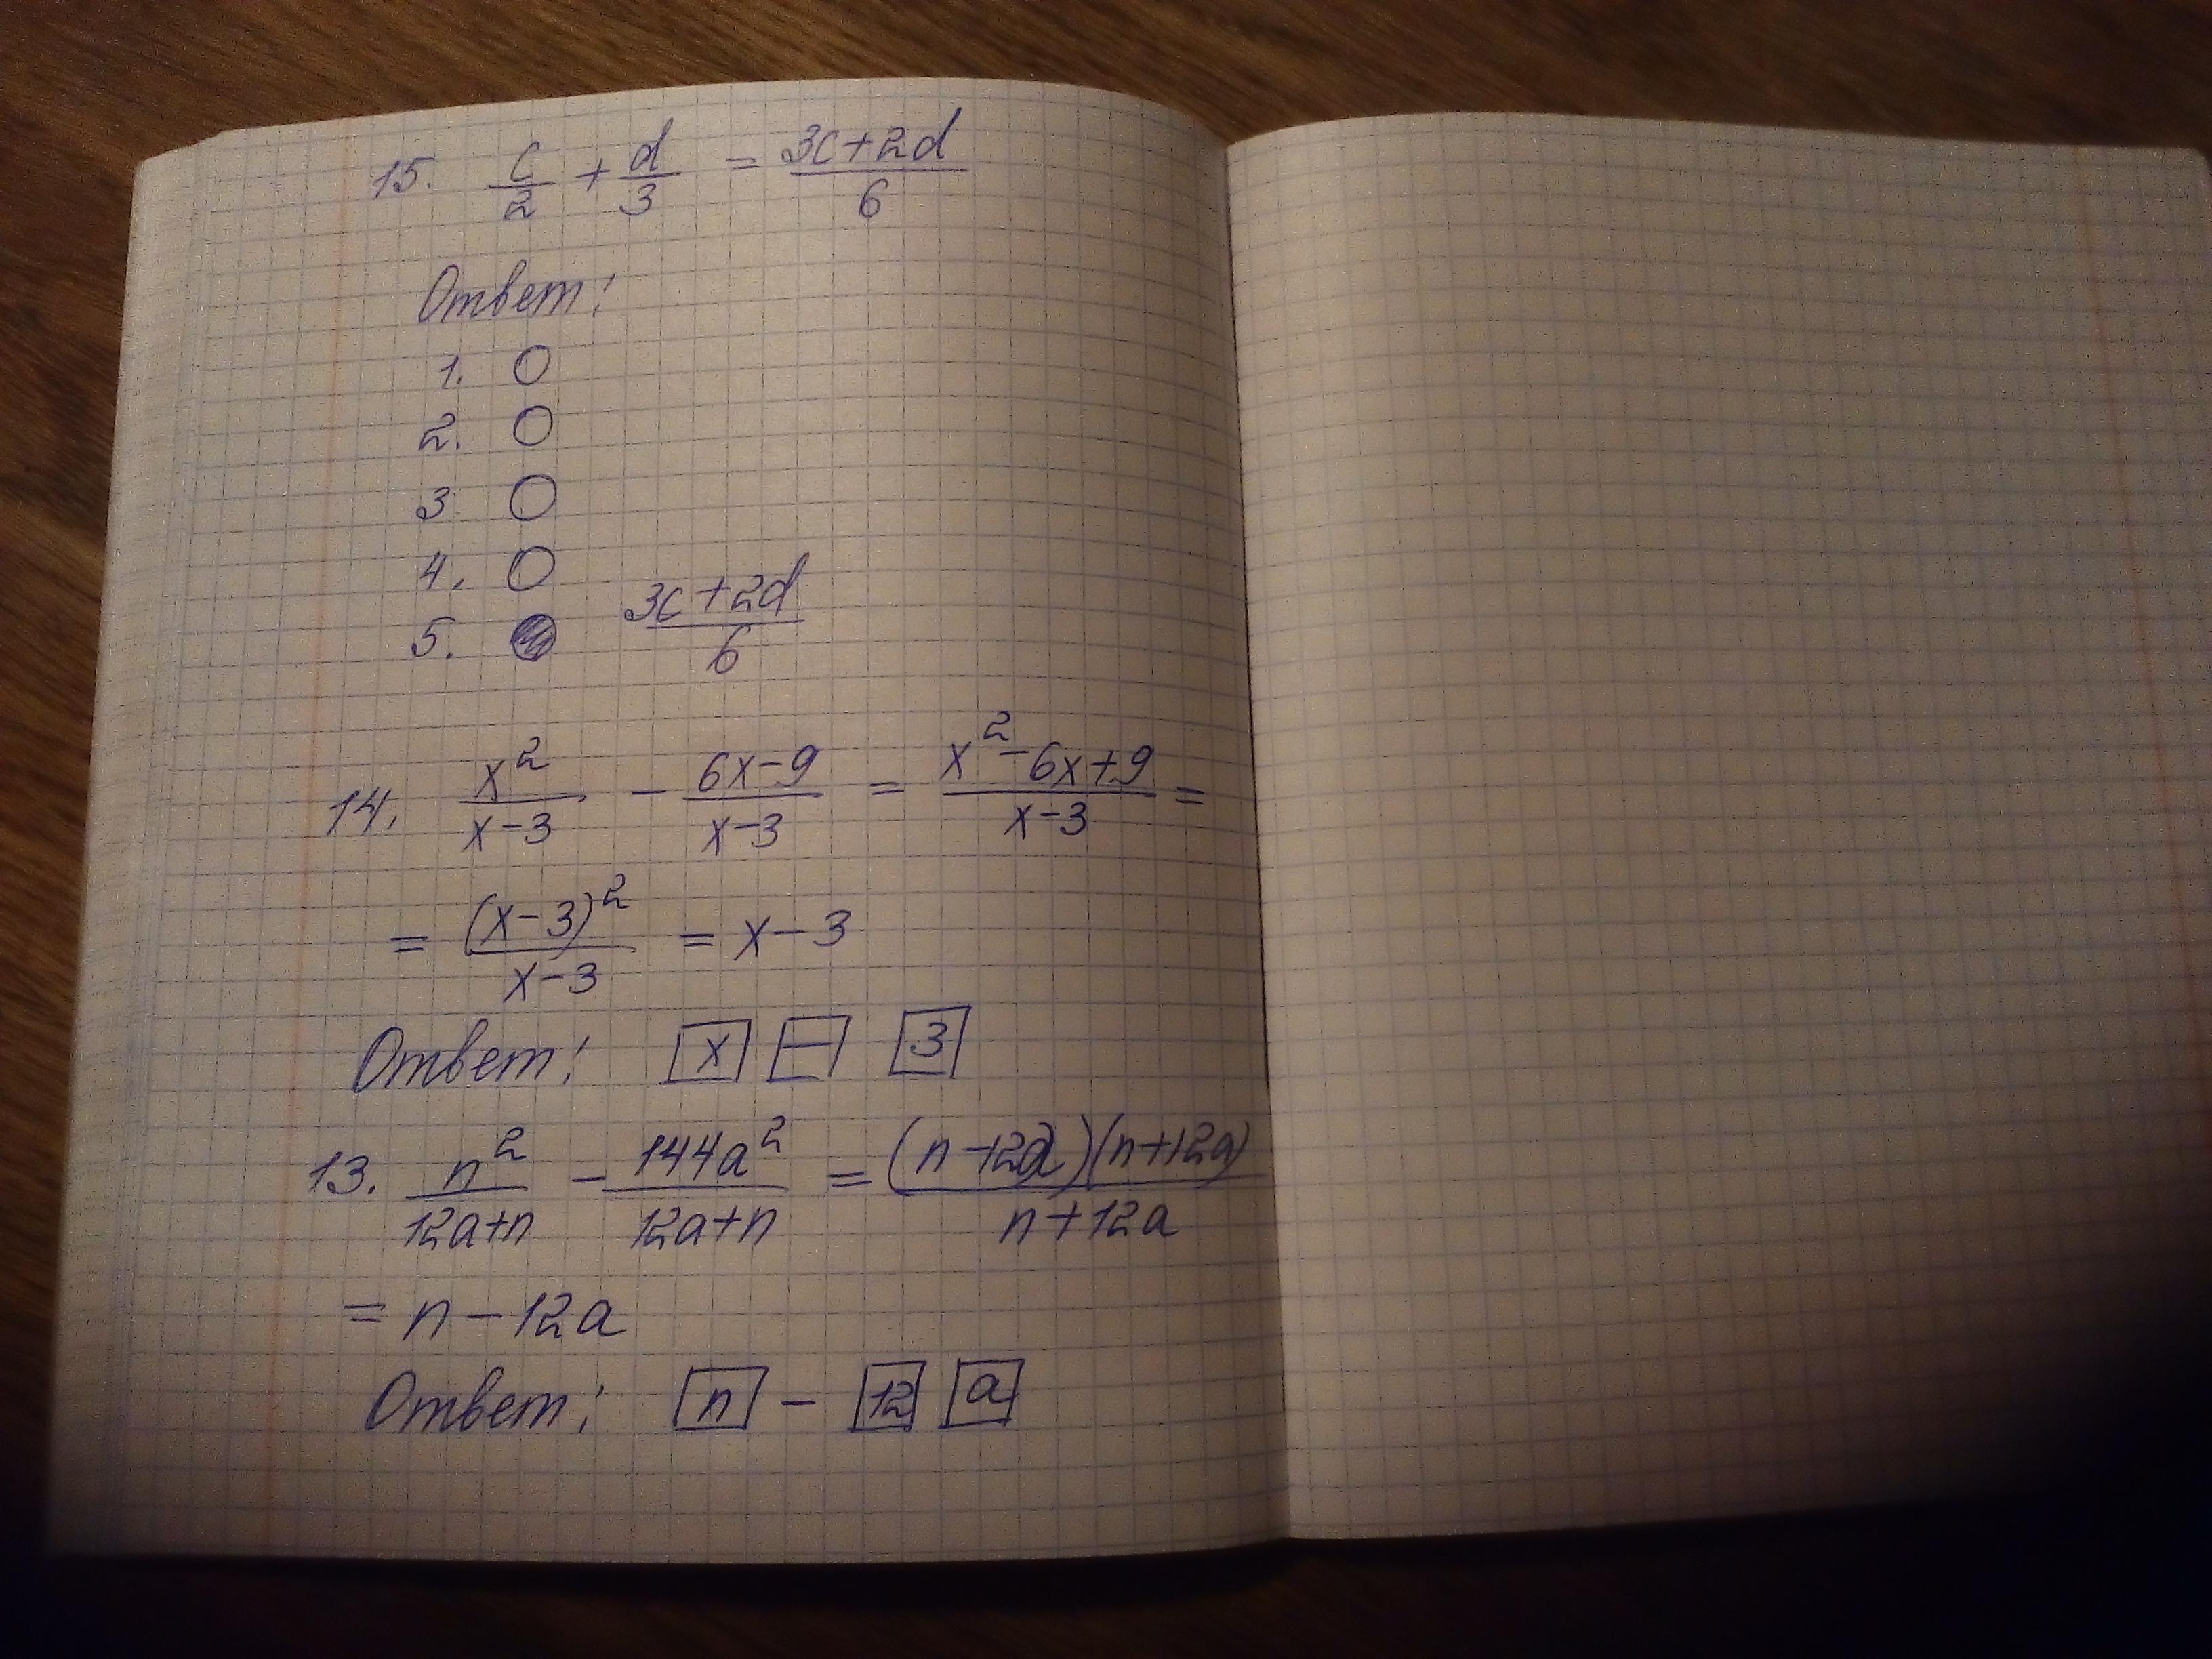 15. c/2 + d/3 = 3c+2d/6
Ответ:
1. ○
2. ○
3 ○
4. ○
5. ● 3c+2d/6
14. x²/x-3 - 6x-9/x-3 = x²-6x+9/x-3 =
= (x-3)²/x-3 = x-3
Ответ: x - 3
13. n²/12a+n - 144a²/12a+n = (n-12a)(n+12a)/n+12a
= n-12a
Ответ: n - 12 a